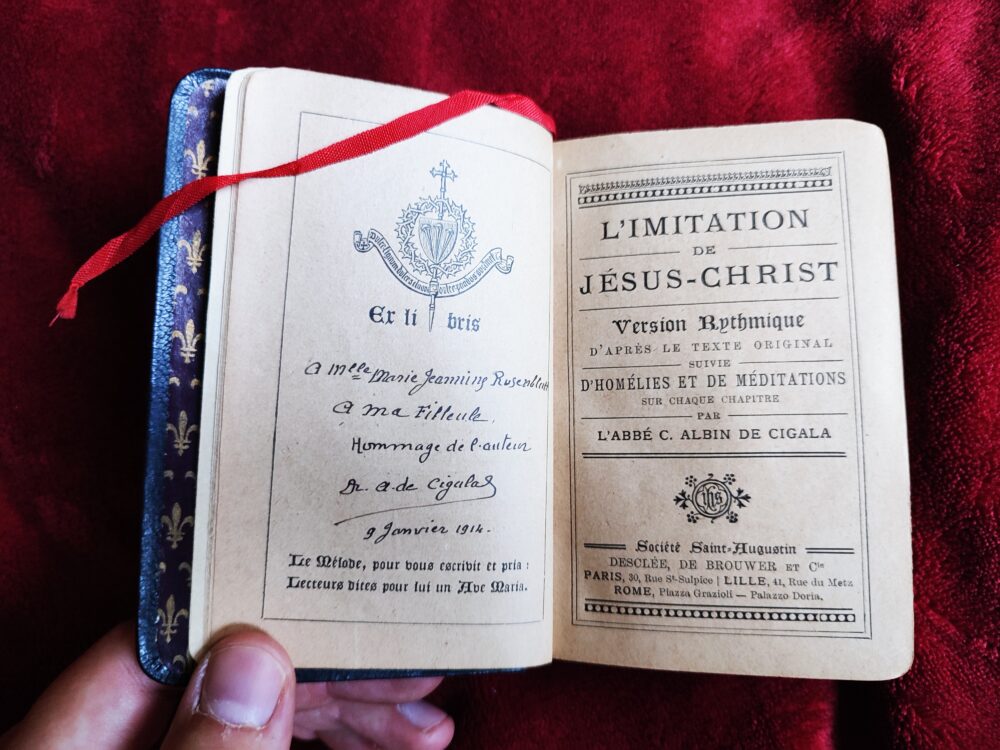 Ex libris
A Mlle Marie Jeannine Rosenblatt
A ma Filleule,
Hommage de l'auteur
Dr. A. de Cigala
9 Janvier 1914.
Le Mélode, pour vous escrivit et pria :
Lecteurs dites pour lui un Ave Maria.
L'IMITATION
DE
JÉSUS-CHRIST
Version Rythmique
D'APRÈS LE TEXTE ORIGINAL
SUIVIE
D'HOMÉLIES ET DE MÉDITATIONS
SUR CHAQUE CHAPITRE
PAR
L'ABBÉ C. ALBIN DE CIGALA
ihs
Société Saint-Augustin
DESCLÉE, DE BROUWER ET Cie
PARIS, 30, Rue St-Sulpice | LILLE, 41, Rue du Metz
ROME, Piazza Grazioli — Palazzo Doria.